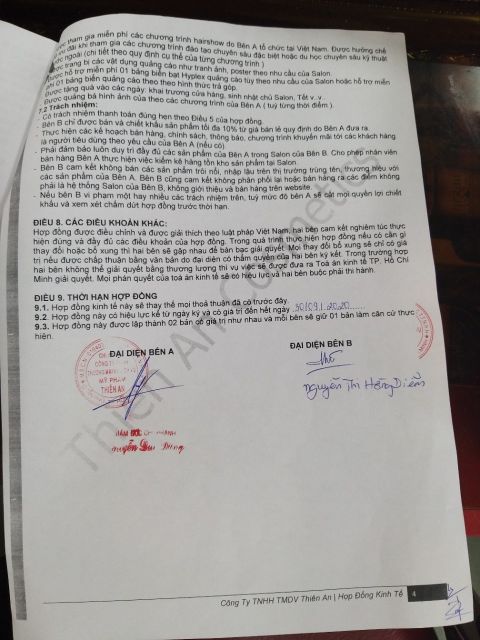 tham gia miễn phí các chương trình hairshow do Bên A tổ chức tại Việt Nam. Được hưởng chế
đãi khi tham gia các chương trình đào tạo chuyên sâu đặc biệt hoặc du học chuyên sâu kỹ thuật
ngoài (chi tiết theo quy định cụ thể của từng chương trình)
trang bị các vật dụng quảng cáo như tranh ảnh, poster theo nhu cầu của Salon.
Được hỗ trợ miễn phí 01 bảng biển bạt Hyplex quảng cáo tùy theo nhu cầu của Salon hoặc hỗ trợ miễn
phí 01 bảng biển quảng cáo theo hình thức trả góp.
Được tặng quà vào các ngày: khai trương cửa hàng, sinh nhật chủ Salon, Tết v..v..
Được quảng bá hình ảnh của theo các chương trình của Bên A ( tuỳ từng thời điểm ).
7.2 Trách nhiệm:
- Có trách nhiệm thanh toán đúng hẹn theo Điều 5 của hợp đồng.
- Bên B chỉ được bán và chiết khấu sản phẩm tối đa 10% từ giá bán lẻ quy định do Bên A đưa ra.
- Thực hiện các kế hoạch bán hàng, chính sách, thông báo, chương trình khuyến mãi tới các khách hàng
là người tiêu dùng theo yêu cầu của Bên A (nếu có)
- Phải đảm bảo luôn duy trì đầy đủ các sản phẩm của Bên A trong Salon của Bên B. Cho phép nhân viên
bán hàng Bên A thực hiện việc kiểm kê hàng tồn kho sản phẩm tại Salon.
- Bên B cam kết không bán các sản phẩm trôi nổi, nhập lậu trên thị trường trùng tên, thương hiệu với
các sản phẩm của Bên A. Bên B cũng cam kết không phân phối lại hoặc bán hàng ra các điểm không
phải là hệ thống Salon của Bên B, không giới thiệu và bán hàng trên website.
- Nếu bên B vi phạm một hay nhiều các trách nhiệm trên, tuỳ mức độ bên A sẽ cắt mọi quyền lợi chiết
khấu và xem xét chấm dứt hợp đồng trước thời hạn.
ĐIỀU 8. CÁC ĐIỀU KHOẢN KHÁC:
Hợp đồng được điều chỉnh và được giải thích theo luật pháp Việt Nam, hai bên cam kết nghiêm túc thực
hiện đúng và đầy đủ các điều khoản của hợp đồng. Trong quá trình thực hiện hợp đồng nếu có cần gì
thay đổi hoặc bổ xung thì hai bên sẽ gặp nhau để bàn bạc giải quyết. Mọi thay đổi bổ xung sẽ chỉ có giá
trị nếu được chấp thuận bằng văn bản do đại diện có thẩm quyền của hai bên ký kết. Trong trường hợp
hai bên không thể giải quyết bằng thương lượng thì vụ việc sẽ được đưa ra Toà án kinh tế TP. Hồ Chí
Minh giải quyết. Mọi phán quyết của toà án kinh tế sẽ có hiệu lực và hai bên buộc phải thi hành.
ĐIỀU 9. THỜI HẠN HỢP ĐỒNG
9.1. Hợp đồng kinh tế này sẽ thay thế mọi thoả thuận đã có trước đây.
9.2. Hợp đồng này có hiệu lực kể từ ngày ký và có giá trị đến hết ngày 30/09/2020
9.3. Hợp đồng này được lập thành 02 bản có giá trị như nhau và mỗi bên sẽ giữ 01 bản làm căn cứ thực
hiện.
ĐẠI DIỆN BÊN A ĐẠI DIỆN BÊN B
MỸ PHẨM
THIÊN AN
Nguyễn Thị Hồng Diễm
Thiên An Cosmetics
Công Ty TNHH TMDV Thiên An | Hợp Đồng Kinh Tế 4